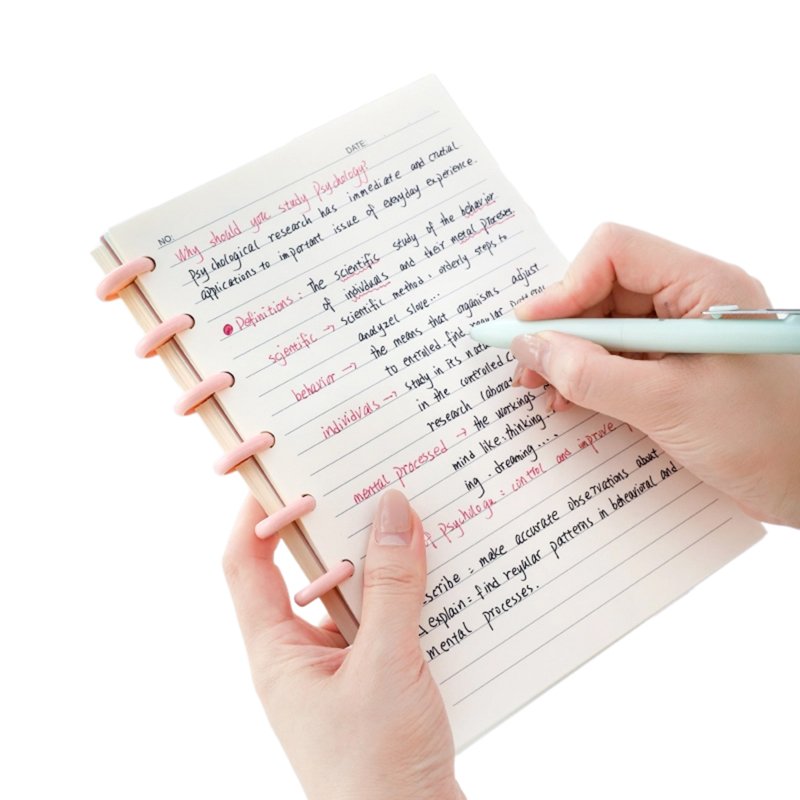 DATE:
NO:
Why should you study Psychology?
Psychological research has immediate and crucial
applications to important issue of everyday experience.
Definitions: the scientific study of the behavior
of individuals and their metal processes
scientific → scientific method, orderly steps to
analyzel slove...
behavior → the means that organisms adjust
to enrolled. find regular
individuals → study in its
in the controlled
research
mental processed → the workings
mind like. thinking
ing. dreaming....
psychologe: control and improve
scribe: make accurate observations about
explain: find regular patterns in behavioral and
mental processes.